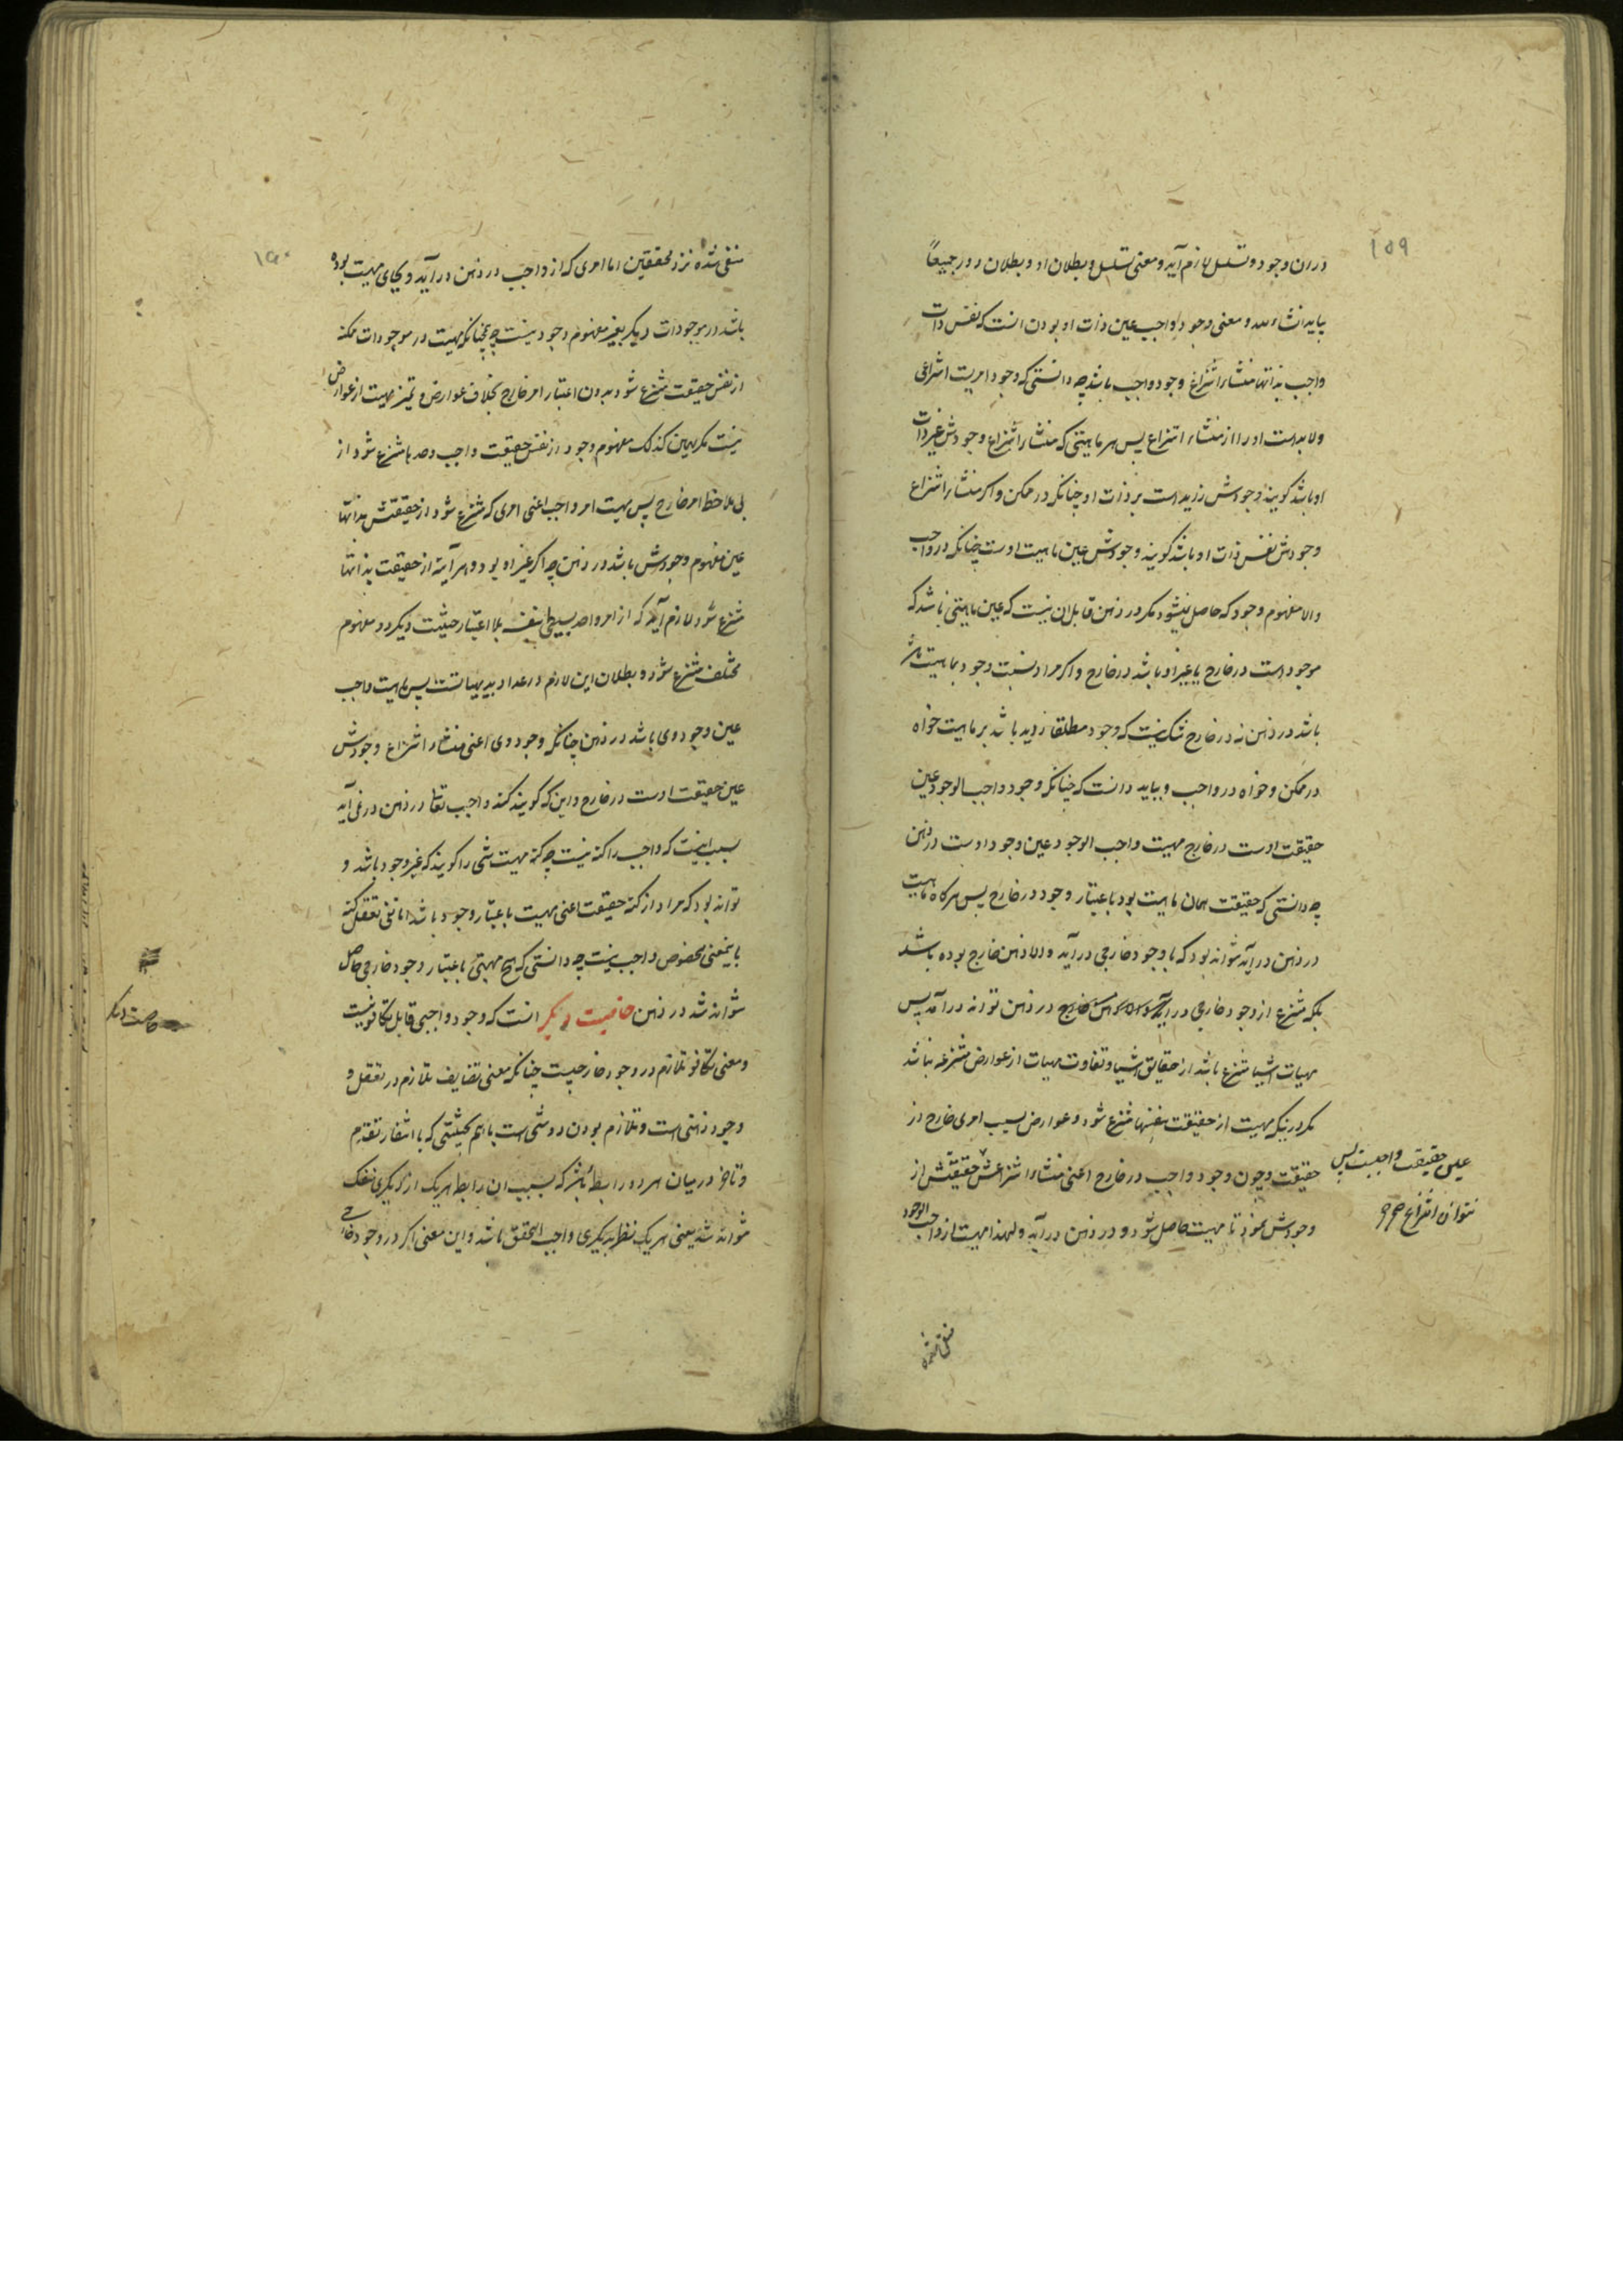 ۱۵۹
در ان وجود و تسلسل لازم آید و معنی تسلسل و بطلان او و بطلان دور جمیعاً
بیاید انشاءالله و معنی وجود واجب عین ذات او بودن انست که نفس ذات
واجب بذاتها منشاء انتزاع وجود واجب باشد چه دانستی که وجود امریست انتزاعی
ولابد است او را از منشاء انتزاع پس هر ماهیتی که منشاء انتزاع وجودش غیر ذات
او باشد کویند وجودش زاید است بر ذات او چنانکه در ممکن و اکر منشاء انتزاع
وجودش نفس ذات او باشد کویند وجودش عین ماهیت اوست چنانکه در واجب
والا مفهوم وجود که حاصل نیشود مکر در ذهن قابل ان نیست که عین ماهیتی باشد که
موجود است در خارج یا غیر او باشد در خارج و اکر مراد نسبت وجود بماهیت
باشد در ذهن نه در خارج شک نیست که وجود مطلقا زاید باشد بر ماهیت خواه
در ممکن و خواه در واجب و بباید دانست که چنانکه وجود واجب الوجود عین
حقیقت اوست در خارج مهیت واجب الوجود عین وجود اوست در ذهن
چه دانستی که حقیقت همان ماهیت بود باعتبار وجود در خارج پس هرکاه ماهیت
در ذهن در آید نتواند بود که با وجود خارجی در آید والا ذهن خارج بوده باشد
بلکه منتزع از وجود خارجی در ذهن تواند در آمد پس
مهیات اشیا منتزع باشد از حقایق اشیا و تفاوت مهیات از عوارض منتزعه نباشد
مکر درینکه مهیت از حقیقت بنفسها منتزع شود و عوارض بسبب امری خارج از
حقیقت و چون وجود واجب در خارج اعنی منشاء انتزاعش حقیقتش از
وجودش نمود تا مهیت حاصل شود و در ذهن در آید و لهذا مهیت از واجب الوجود
عین حقیقت واجبست پس
نتواند انتزاع
منفی شده
منفی شده نزد محققین اما امری که از واجب در ذهن در آید و بجای مهیت بوده
باشد در موجودات دیکر بغیر مفهوم وجود نیست چه همچنانکه مهیت در موجودات ممکنه
از نفس حقیقت منتزع شود بدون اعتبار امر خارج بخلاف عوارض و تمیز مهیت از عوارض
نیست مکر بهمین کذلک مفهوم وجود از نفس حقیقت واجب وحدها منتزع شود از
بی ملاحظه امر خارج پس مهیت امر واجب اعنی امری که منتزع شود از حقیقتش بذاتها
عین مفهوم وجودش باشد در ذهن چه اکر غیر او بود و هر آینه از حقیقت بذاتها
منتزع شود لازم آید که از امر واحد بسیط بنفسه بلا اعتبار حیثیت دیکر دو مفهوم
مختلف منتزع شود و بطلان این لازم در عداد بدیهیاتست پس ماهیت واجب
عین وجود وی باشد در ذهن چنانکه وجود وی اعنی منشاء انتزاع وجودش
عین حقیقت اوست در خارج و این که کویند کنه واجب تعالی در ذهن در نمی آید
بسبب اینست که واجب را کنه نیست چه کنه مهیت شی را کویند که غیر وجود باشد و
تواند بود که مراد از کنه حقیقت اعنی مهیت باعتبار وجود باشد اما نفی تعقل کنه
باینمعنی مخصوص واجب نیست چه دانستی که هیچ مهیتی باعتبار وجود خارجی حاصل
نتواند شد در ذهن خاصیت دیکر انست که وجود واجبی قابل تکافو نیست
و معنی تکافو تلازم در وجود خارجیست چنانکه معنی تضایف تلازم در تعقل و
وجود ذهنی است و تلازم بودن دو شی است باهم بحیثیتی که با انتفاء تقدم
و تاخر در میان هر دو رابطه باشد که بسبب ان رابطه هریک از دیکری منفک
نتواند شد یعنی هر یک نظر بدیکری واجب التحقق باشد و این معنی اکر در وجود خارجی
خاصیت دیکر